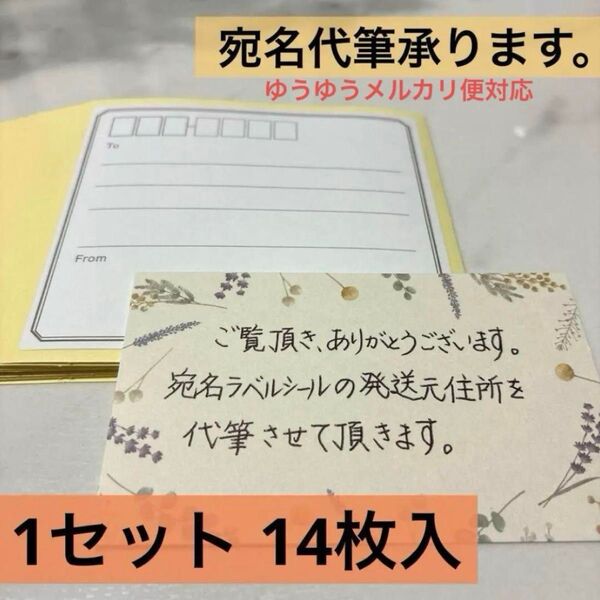 宛名代筆承ります。
ゆうゆうメルカリ便対応
To
From
ご覧頂き、ありがとうございます。
宛名ラベルシールの発送元住所を
代筆させて頂きます。
1セット 14枚入